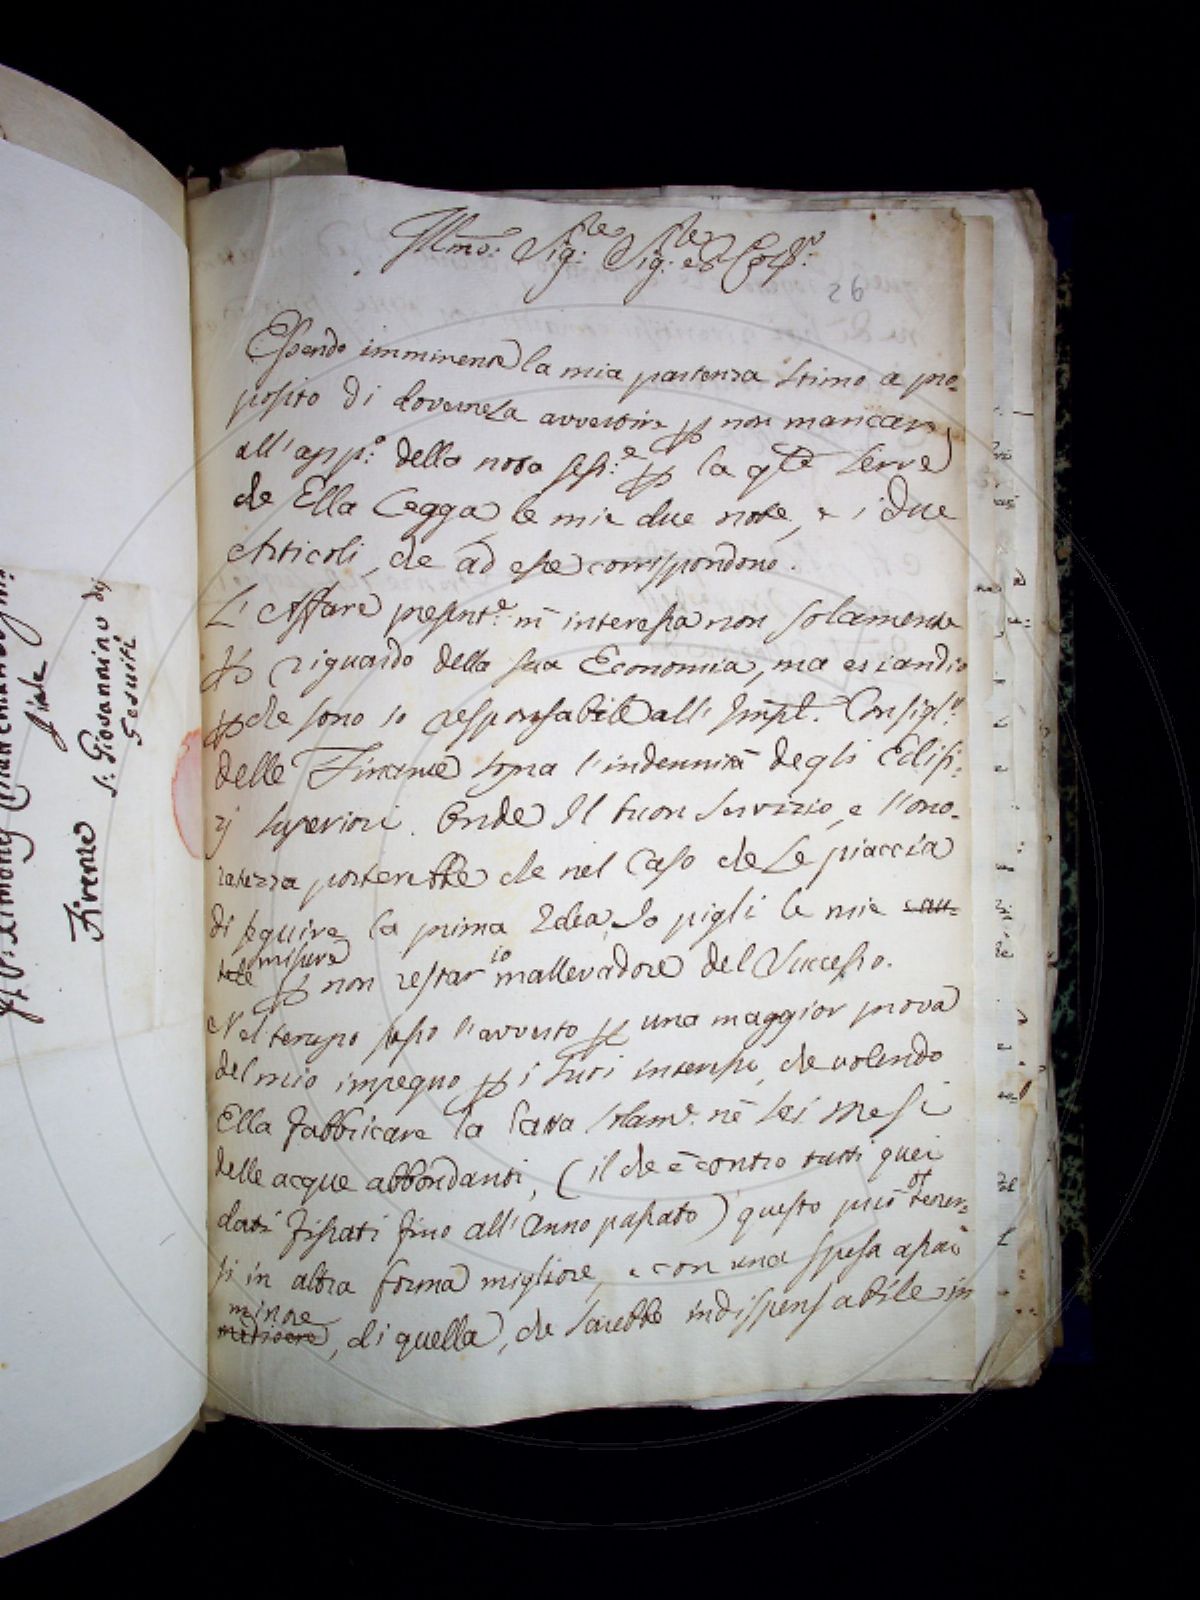 Firenze
S. Giovannino dei
Gesuiti
Illmo: Sig:re Sig:re e Pro: Col:mo
26
Essendo imminente la mia partenza stimo a pro-
posito di dovernela avvertire p non mancare
all'app:o della nota sess:e p la qle serve
che Ella legga le mie due note, e i due
Articoli, che ad esse corrispondono.
L'Affare presente m'interessa non solamente
p riguardo della sua Economia, ma eziandio
p che sono io responsabile all'Impl. Consigl:o
delle Finanze sopra l'indennità degli Edifi-
zj superiori. Onde Il buon servizio, e l'ono-
ratezza porterebbe che nel Caso che Le piaccia
di seguire la prima Idea, Io pigli le mie cau-
tele misure p non restar io mallevadore del Successo.
Nel tempo stesso l'avverto p una maggior prova
del mio impegno p i suoi interessi, che volendo
Ella fabbricare la Carta solam:e ne' sei mesi
delle acque abbondanti, (il che è contro tutti quei
dati fissati fino all'Anno passato) questo può ottener-
si in altra forma migliore, e con una spesa assai
minore mediocre, di quella, che sarebbe indispensabile in